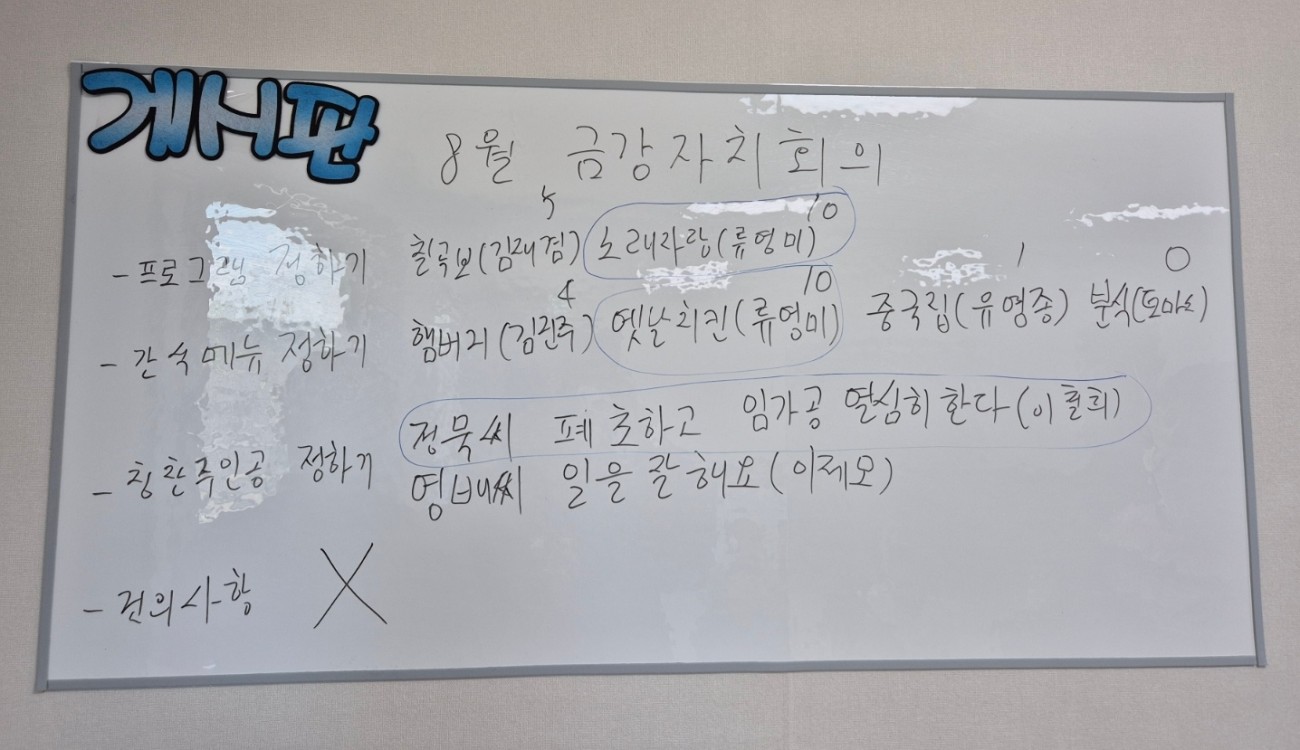 게시판
8월 금강자치회의
- 프로그램 정하기 칠곡보(김재겸) 5 노래자랑(류영미) 10
- 간식메뉴 정하기 햄버거(김진주) 4 옛날치킨(류영미) 10 중국집(유영종) 1 분식(도마소) 0
- 칭찬주인공 정하기 정묵씨 폐초하고 임가공 열심히한다(이훈희)
영배씨 일을 잘해요(이제모)
- 건의사항 X